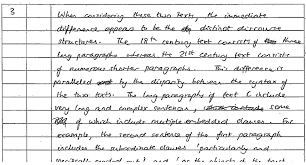 3
When considering these two texts, the immediate
difference appears to be the distinct discourse
structures. The 18th century text consists of three
long paragraphs whereas the 21st century text consists
of numerous shorter paragraphs. This difference is
paralleled by the disparity between the syntax of
the two texts. The long paragraphs of text C include
very long and complex sentences, some
of which include multiple embedded clauses. For
example, the second sentence of the first paragraph
includes the subordinate clauses 'particularly and